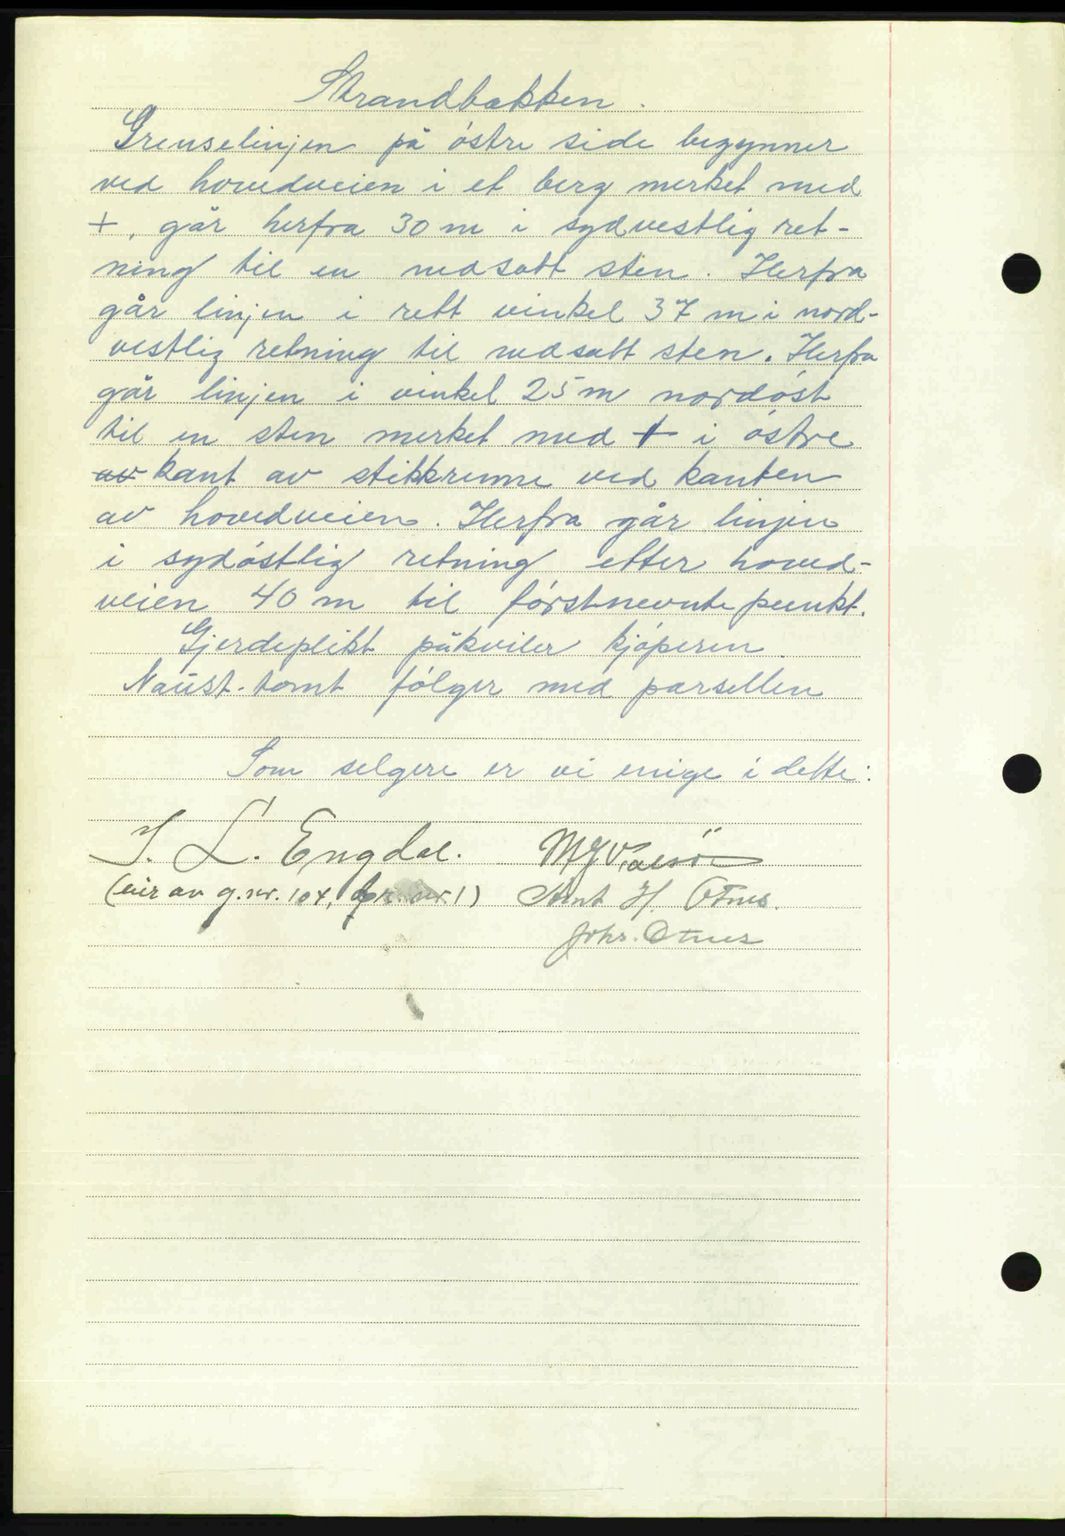 Strandbakken.
Grenselinjen på østre side begynner
ved hovedveien i et berg merket med
+, går herfra 30 m i sydvestlig ret-
ning til en nedsatt sten. Herfra
går linjen i rett vinkel 37 m i nord-
vestlig retning til nedsatt sten. Herfra
går linjen i vinkel 25 m nordøst
til en sten merket med + i østre
av kant av stikkrenne ved kanten
av hovedveien. Herfra går linjen
i sydøstlig retning etter hoved-
veien 40 m til førstnevnte punkt.
Gjerdeplikt påkviler kjøperen.
Naust-tomt følger med parsellen
Som selgere er vi enige i dette:
L. Engdal.
(eier av g.nr. 104, br. nr. 1) Arnt H. Otnes.
Johs. Otnes